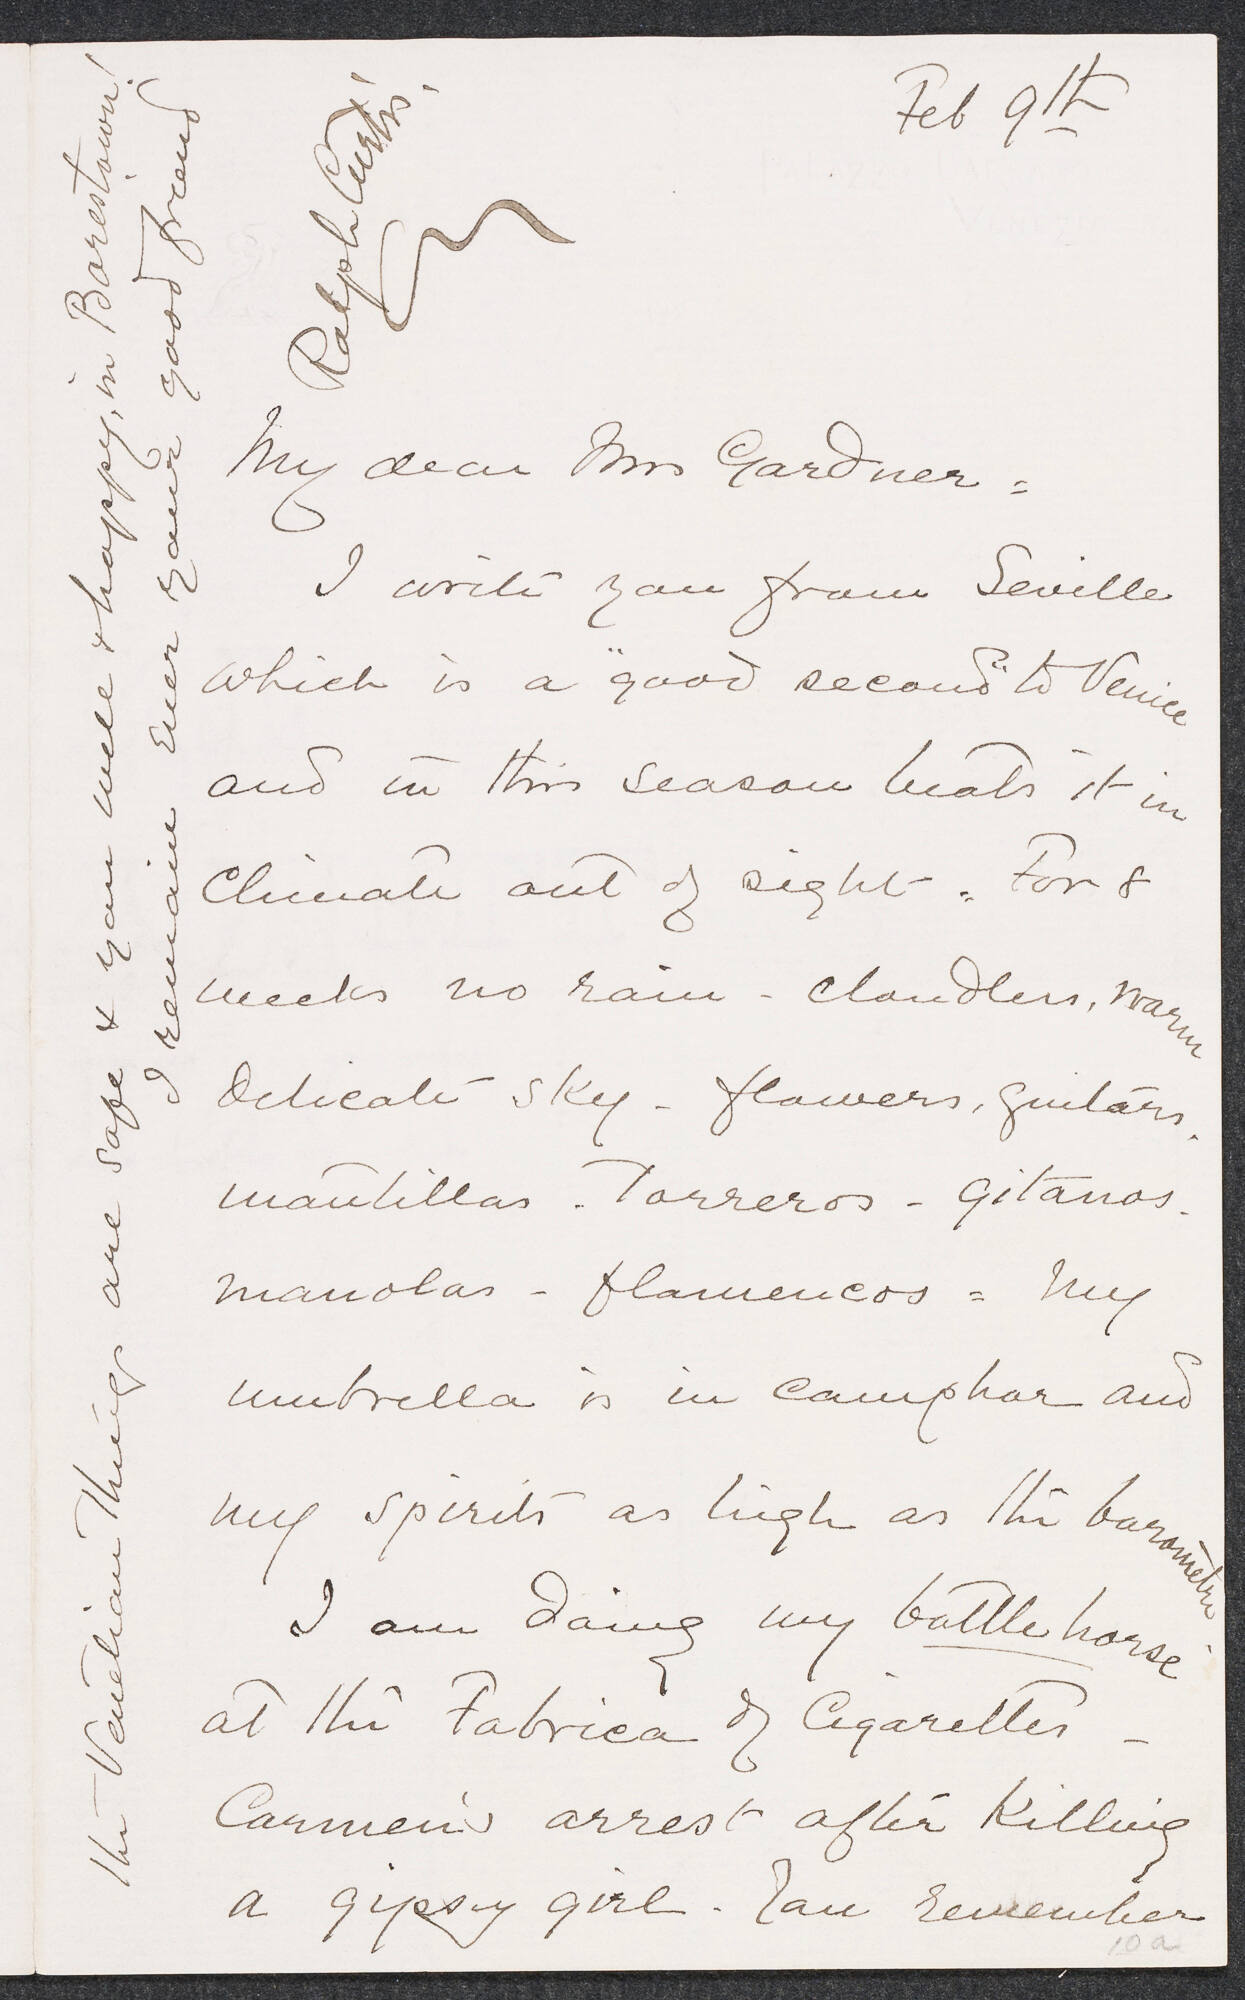 Feb 9th
My dear Mrs Gardner =
I write you from Seville
which is a "good second" to Venice
and in this season beats it in
Climate out of sight. For 8
weeks no rain - cloudless, warm
delicate sky - flowers, guitars,
mantillas - Torreros - gitanos -
manolas - flamencos = My
umbrella is in camphor and
my spirits as high as the barometer.
I am doing my battle horse
at the Fabrica of Cigarettes -
Carmen's arrest after Killing
a gipsy girl. You remember
10a
the Venetian Things are safe & you well & happy, in Borestown!
I remain Ever your good friend
Ralph Curtis!